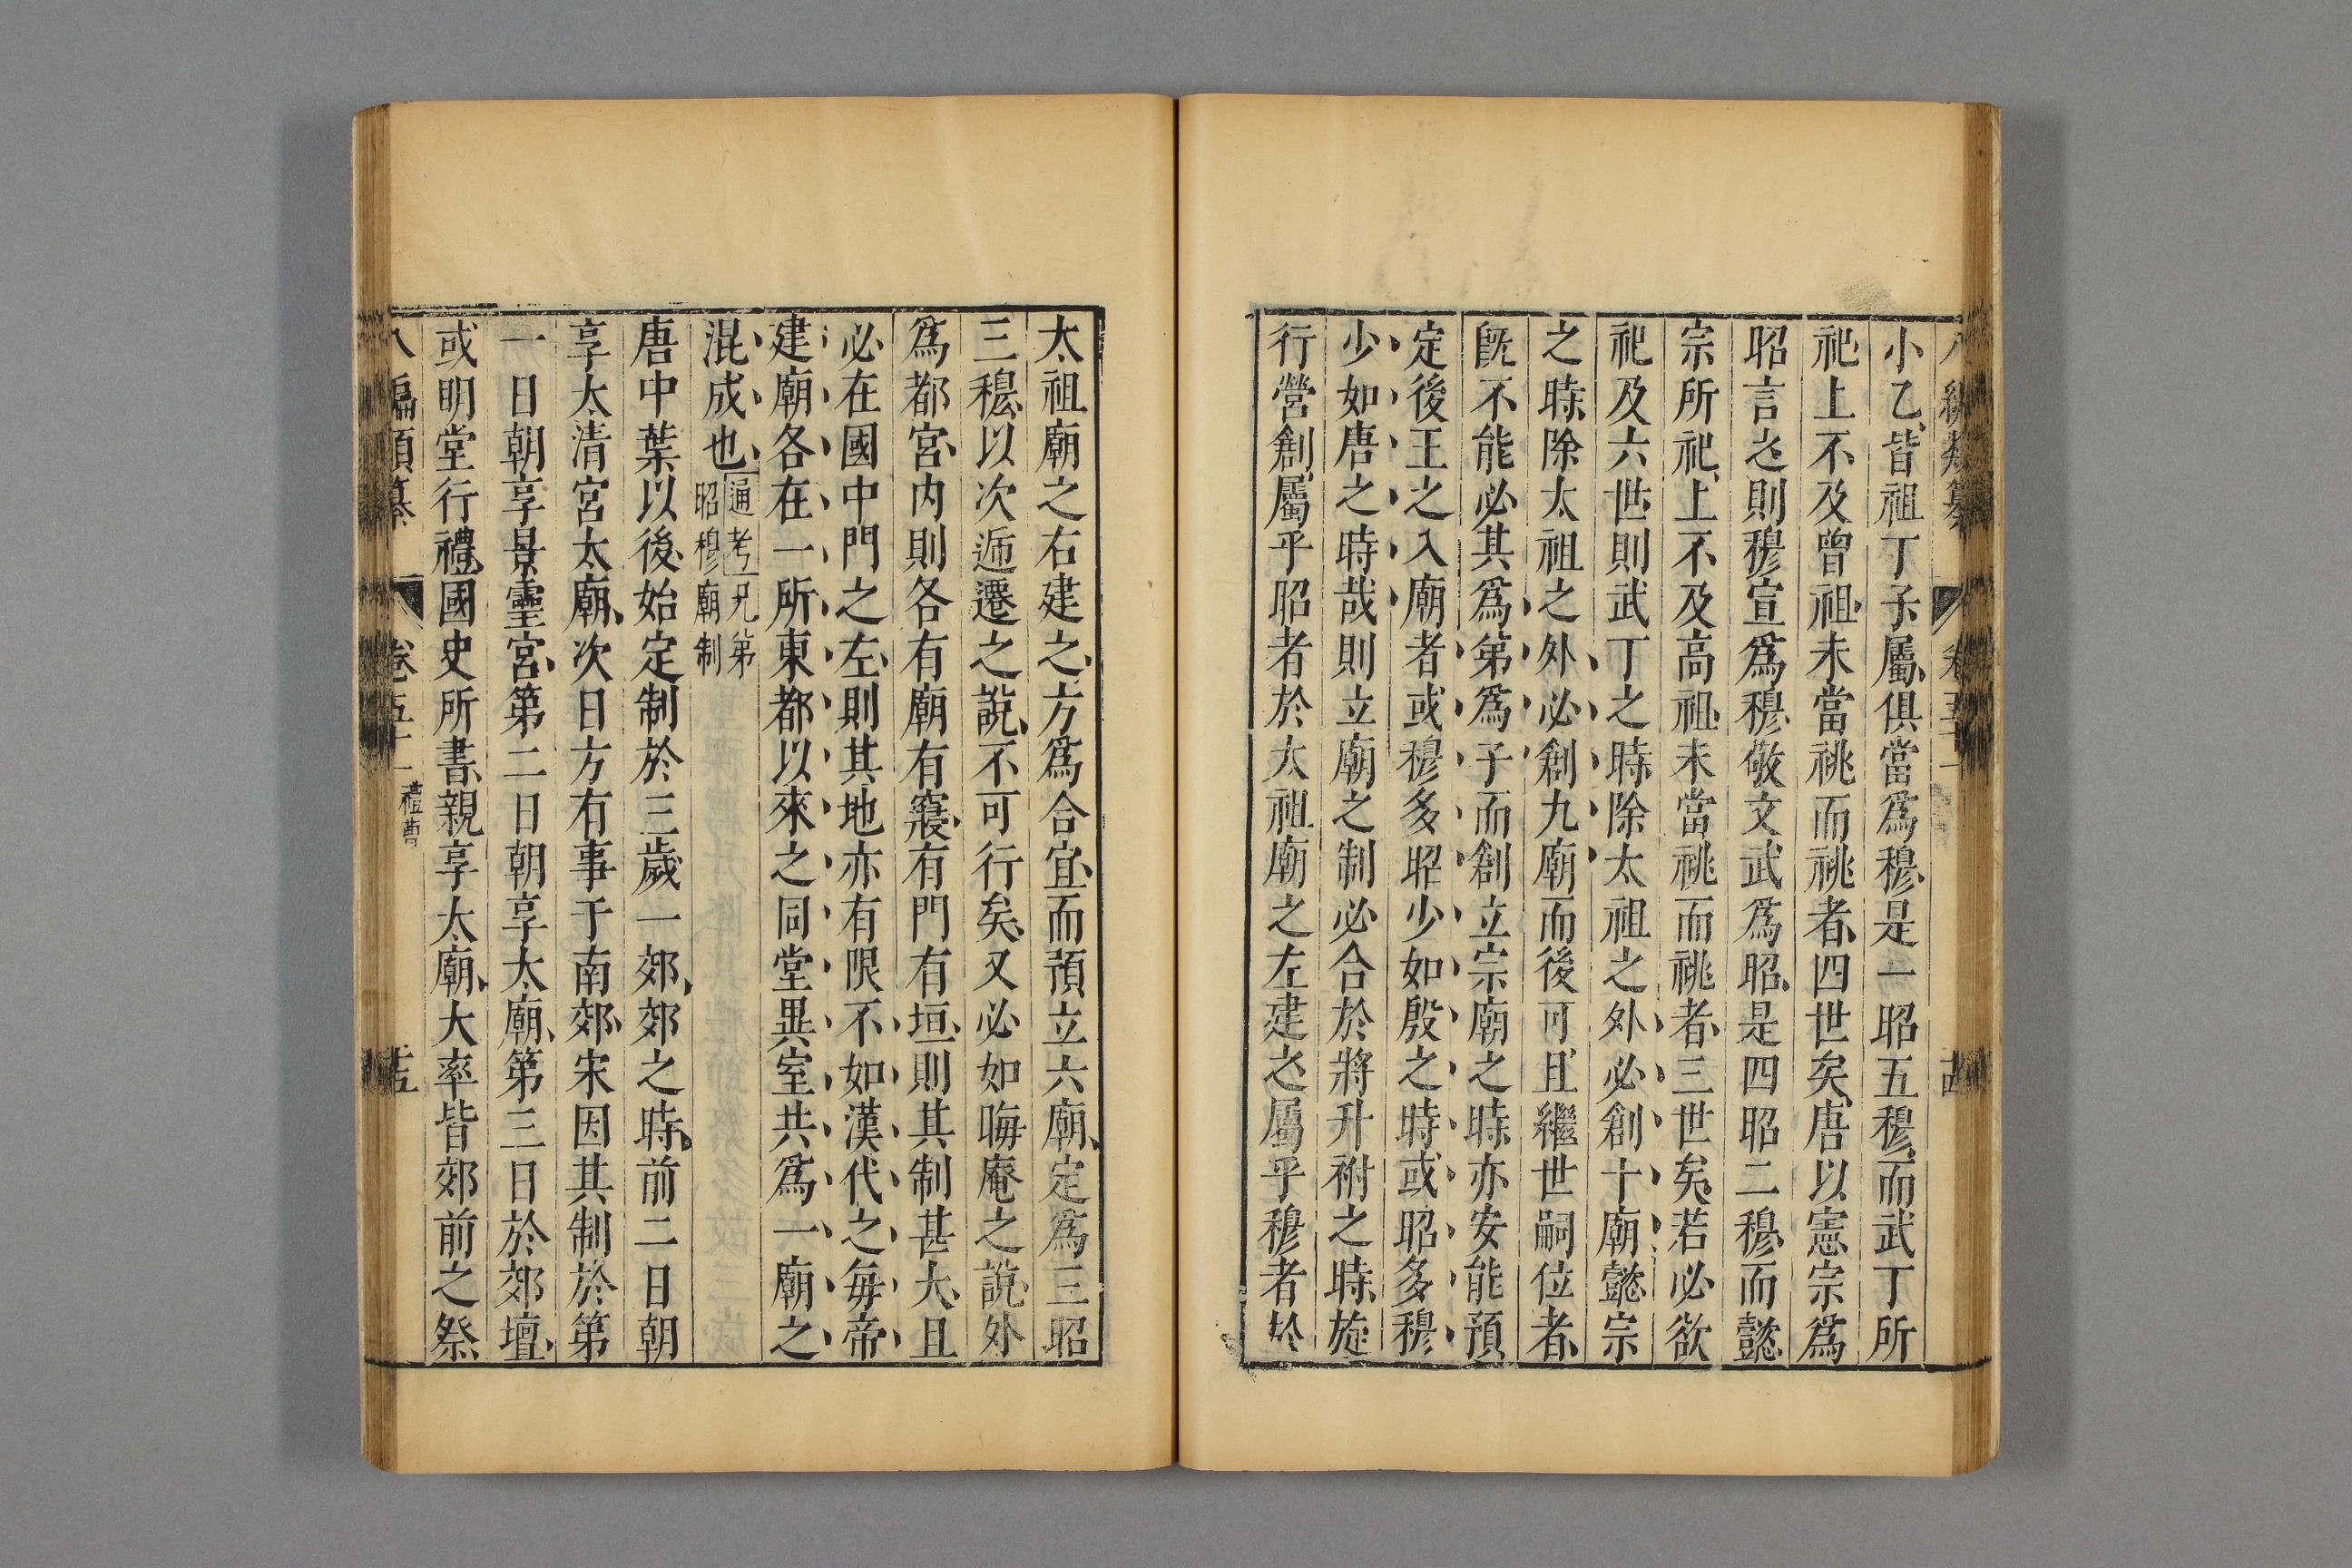 小乙皆祖丁子屬俱當爲穆是一昭五穆而武丁所
祀上不及曾祖未當祧而祧者四世矣唐以憲宗爲
昭言之則穆宣爲穆敬文武爲昭是四昭二穆而懿
宗所祀上不及高祖未當祧而祧者三世矣若必欲
祀及六世則武丁之時除太祖之外必創十廟懿宗
之時除太祖之外必創九廟而後可且繼世嗣位者
旣不能必其爲第爲子而創立宗廟之時亦安能預
定後王之入廟者或穆多昭少如殷之時或昭多穆
少如唐之時哉則立廟之制必合於將升祔之時旋
行營創屬乎昭者於太祖廟之左建之屬乎穆者於
太祖廟之右建之方爲合宜而預立六廟定爲三昭
三穆以次遞遷之說不可行矣又必如晦庵之說外
爲都宮內則各有廟有寢有門有垣則其制甚大且
必在國中門之左則其地亦有限不如漢代之每帝
建廟各在一所東都以來之同堂異室共爲一廟之
混成也
通考兄第
昭穆廟制
唐中葉以後始定制於三歲一郊郊之時前二日朝
享太清宮太廟次日方有事于南郊宋因其制於第
一日朝享景靈宮第二日朝享太廟第三日於郊壇
或明堂行禮國史所書親享太廟大率皆郊前之祭
八編類纂
卷五十一
禮曹
十五